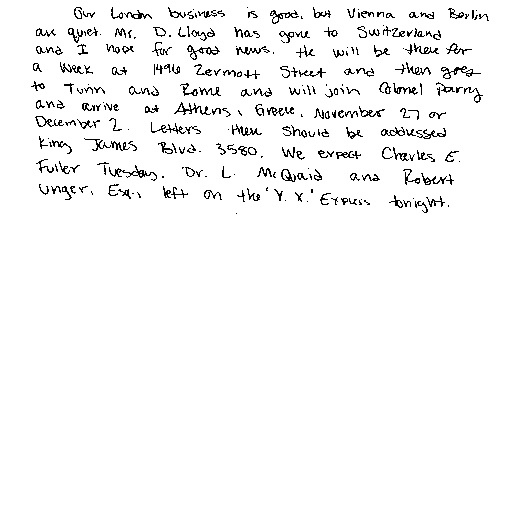 Our London business is good, but Vienna and Berlin
are quiet. Mr. D. Lloyd has gone to Switzerland
and I hope for good news. He will be there for
a week at 1496 Zermott Street and then goes
to Turin and Rome and will join Colonel Parry
and arrive at Athens, Greece, November 27 or
December 2. Letters there should be addressed
King James Blvd. 3580. We expect Charles E.
Fuller Tuesday. Dr. L. McQuaid and Robert
Unger, Esq., left on the 'Y. X.' Express tonight.